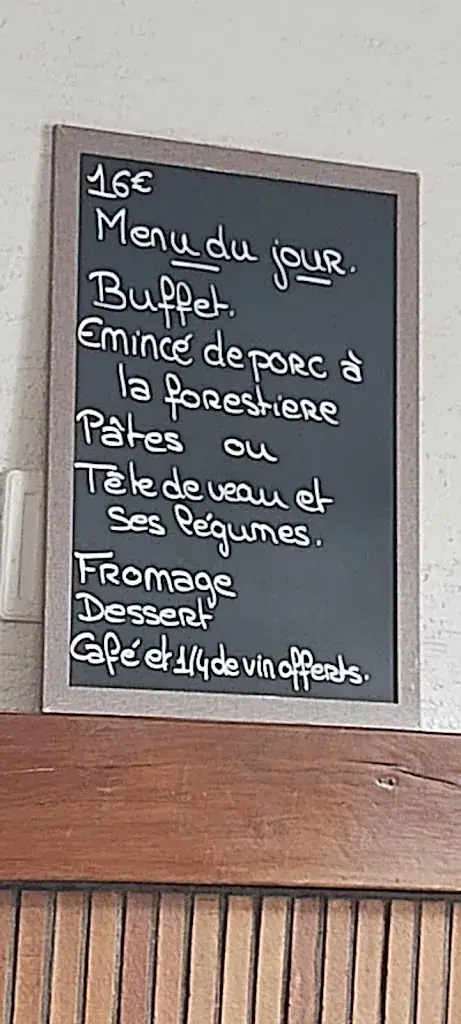 16€
Menu du jour.
Buffet.
Emincé de porc à
la forestiere
Pâtes ou
Tête de veau et
ses légumes.
Fromage
Dessert
Café et 1/4 de vin offerts.